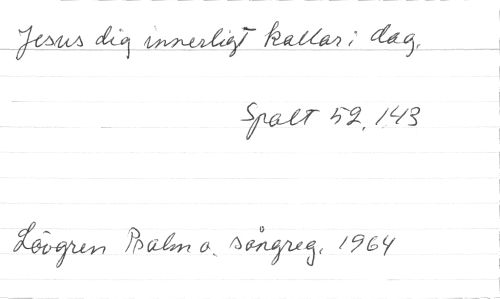 Jesus dig innerligt kallar i dag.
Spalt 52, 143
Lövgren Psalm o. sångreg. 1964